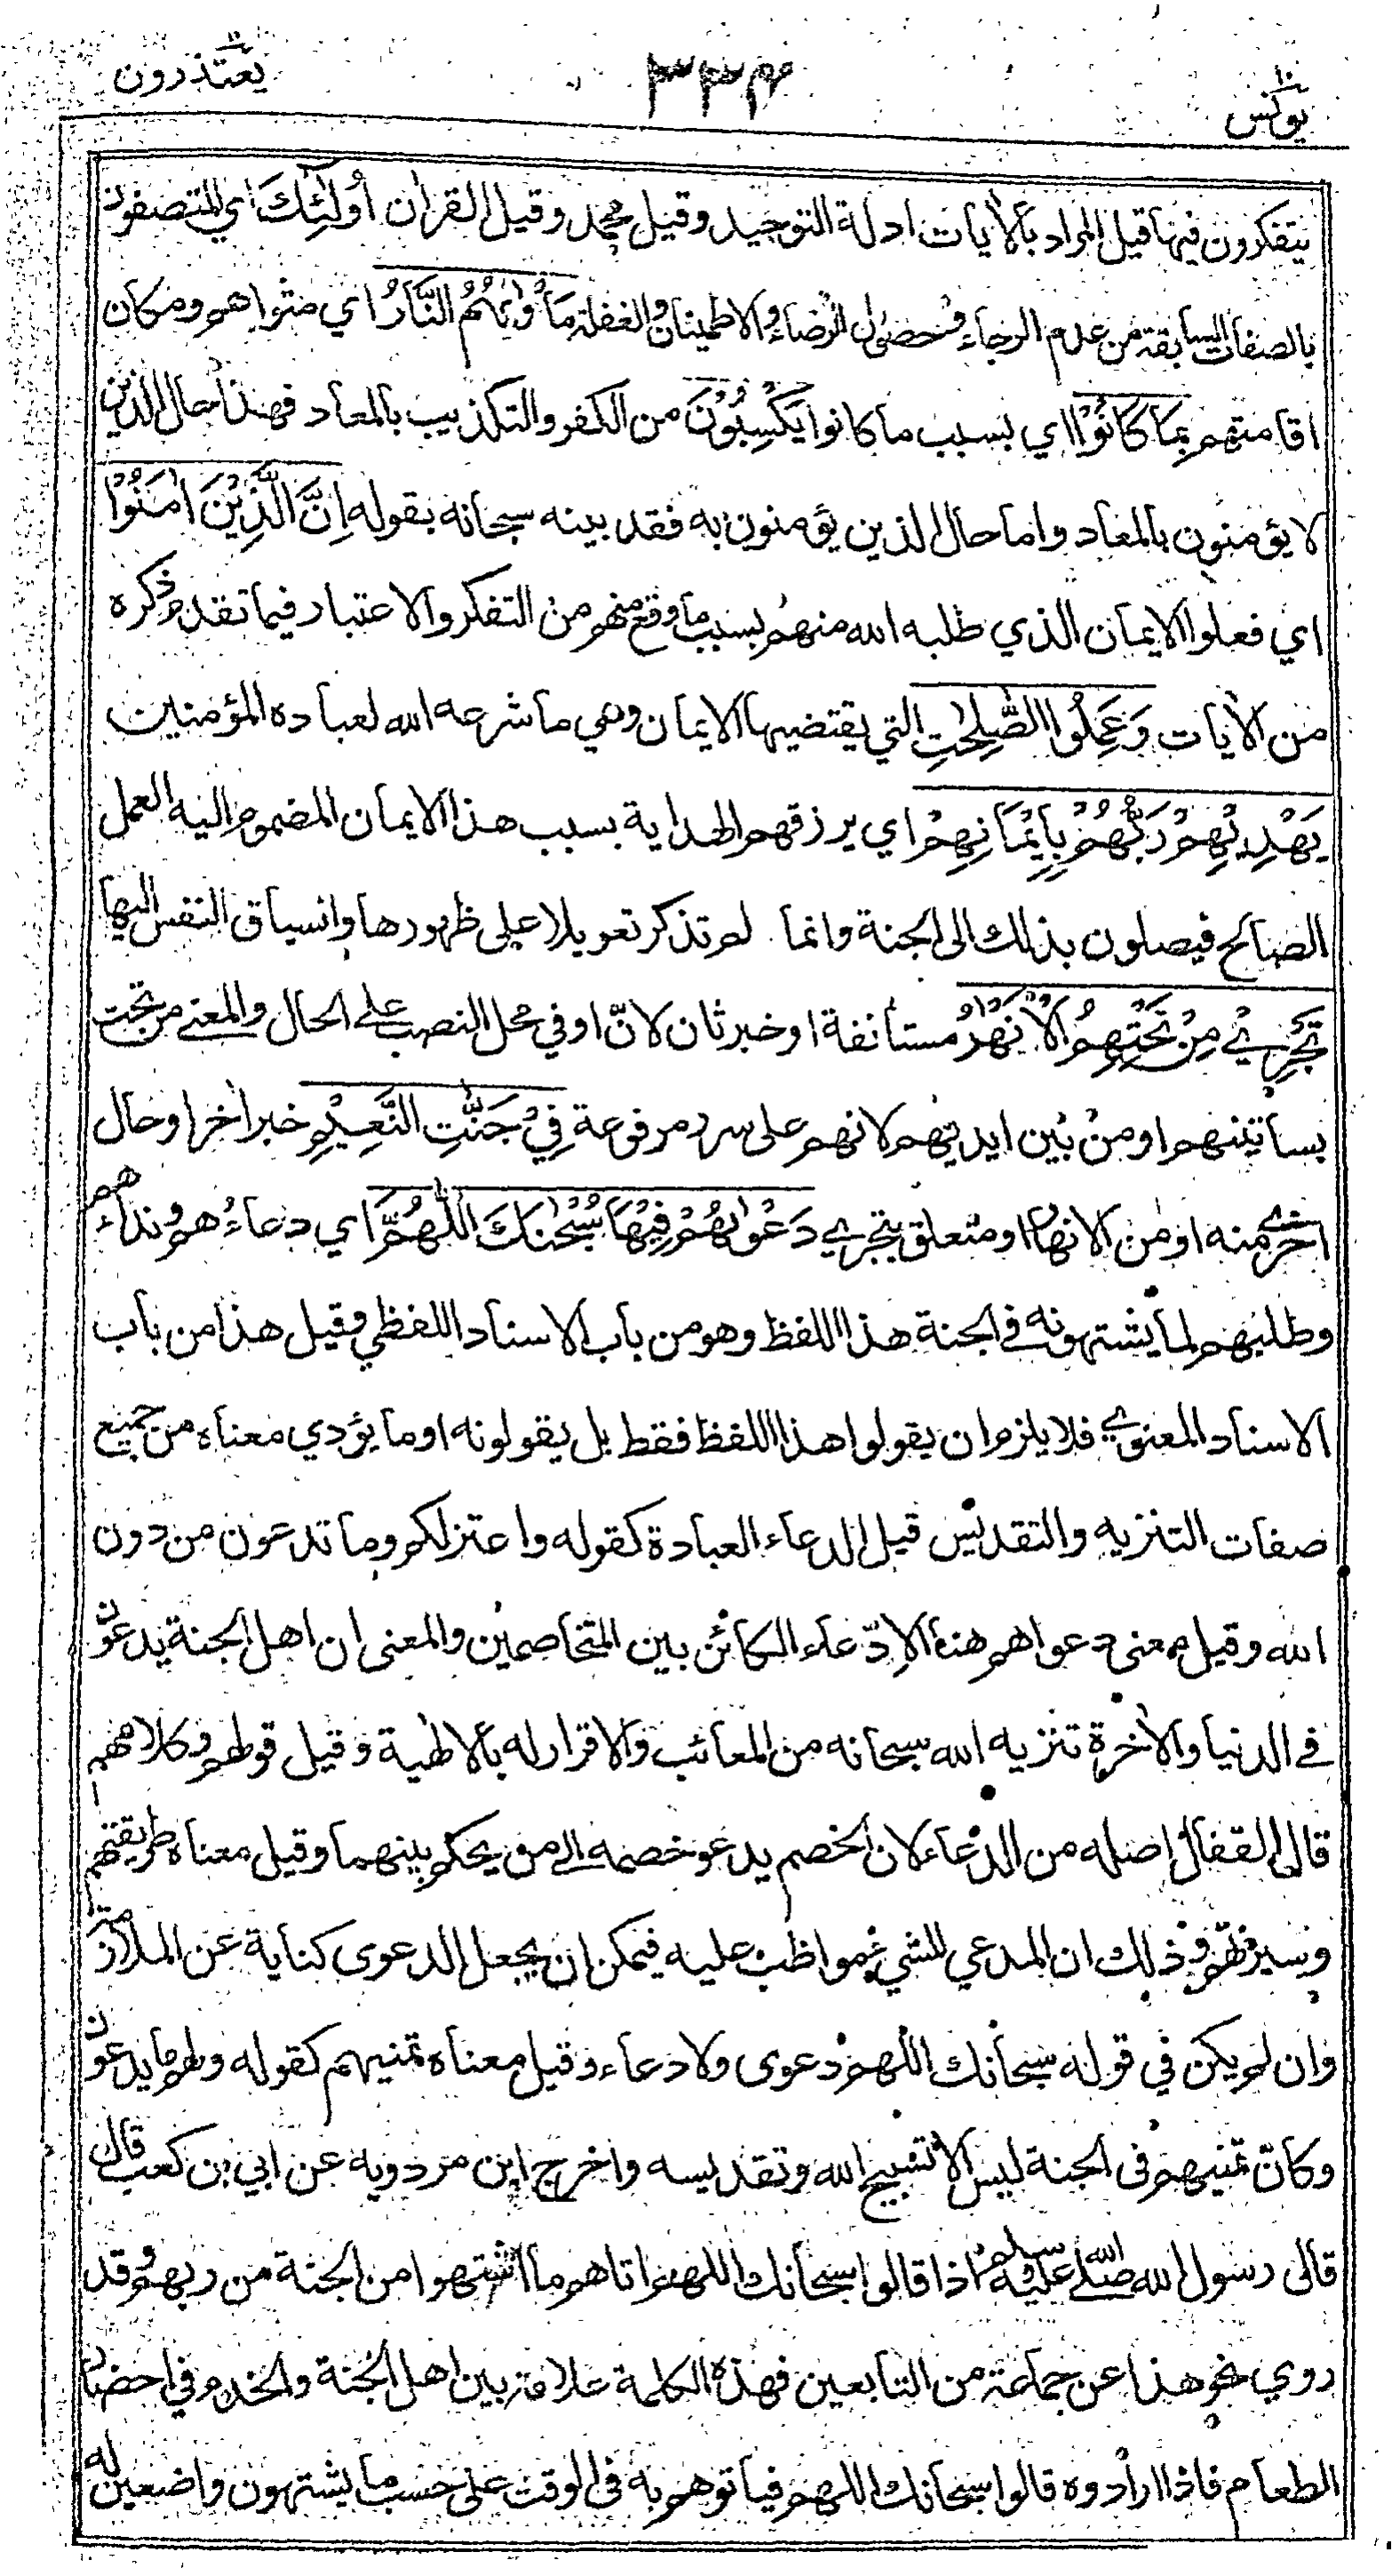 يونس ١٠
٣٣٤
يعتذرون ١١
يتفكرون فيها قيل المراد بالأيات ادلة التوحيد وقيل محمد وقيل القران أُولٰئِكَ اي المتصفون
بالصفات السابقة من عدم الرجاء وحصول الرضاء والاطمينان والغفلة مَأْوٰىهُمُ النَّارُ اي مثواهم ومكان
اقامتهم بِمَا كَانُوْا اي بسبب ما كانوا يَكْسِبُوْنَ من الكفر والتكذيب بالمعاد فهذا حال الذين
لا يؤمنون بالمعاد واما حال الذين يؤمنون به فقد بينه سبحانه بقوله اِنَّ الَّذِيْنَ اٰمَنُوْا
اي فعلوا الايمان الذي طلبه الله منهم بسبب ما وقع منهم من التفكر والاعتبار فيما تقدم ذكره
من الأيات وَعَمِلُوا الصّٰلِحٰتِ التي يقتضيها الايمان وهي ما شرعه الله لعباده المؤمنين
يَهْدِيْهِمْ رَبُّهُمْ بِاِيْمَانِهِمْ اي يرزقهم الهداية بسبب هذا الايمان المضموم اليه العمل
الصالح فيصلون بذلك الى الجنة وانما لم تذكر تعويلا على ظهورها وانسياق النفس اليها
تَجْرِيْ مِنْ تَحْتِهِمُ الْاَنْهٰرُ مستأنفة او خبر ثان لانّ او في محل النصب على الحال والمعنى من تحت
بساتينهم او من بين ايديهم لانهم على سرر مرفوعة فِيْ جَنّٰتِ النَّعِيْمِ خبر اٰخر او حال
اخرى منه او من الانهار او متعلق بتجري دَعْوٰىهُمْ فِيْهَا سُبْحٰنَكَ اللّٰهُمَّ اي دعاءُهم ونداءهم
وطلبهم لما يشتهونه في الجنة هذا اللفظ وهو من باب الاسناد اللفظي وقيل هذا من باب
الاسناد المعنوي فلا يلزم ان يقولوا هذا اللفظ فقط بل يقولونه او ما يؤدي معناه من جميع
صفات التنزيه والتقديس قيل الدعاء العبادة كقوله واعتزلكم وما تدعون من دون
الله وقيل معنى دعواهم هنا الادّعاء الكائن بين المتخاصمين والمعنى ان اهل الجنة يدعون
في الدنيا والأخرة تنزيه الله سبحانه من المعائب والاقرار له بالالهية وقيل قولهم وكلامهم
قال القفال اصله من الدعاء لان الخصم يدعو خصمه الى من يحكم بينهما وقيل معناه طريقتهم
وسيرتهم وذلك ان المدعي للشي مواظب عليه فيمكن ان يجعل الدعوى كناية عن الملازمة
وان لم يكن في قوله سبحانك اللهم دعوى ولا دعاء وقيل معناه تمنيهم كقوله ولهم ما يدعون
وكانّ تمنيهم في الجنة ليس الا تسبيح الله وتقديسه واخرج ابن مردويه عن ابي بن كعب قال
قال رسول الله صلى الله عليه وسلم اذا قالوا سبحانك اللهم اتاهم ما اشتهوا من الجنة من ربهم وقد
روي نحو هذا عن جماعة من التابعين فهذه الكلمة علامة بين اهل الجنة والخدم في احضار
الطعام فاذا ارادوه قالوا سبحانك اللهم فياتوهم به في الوقت على حسب ما يشتهون واضعين له